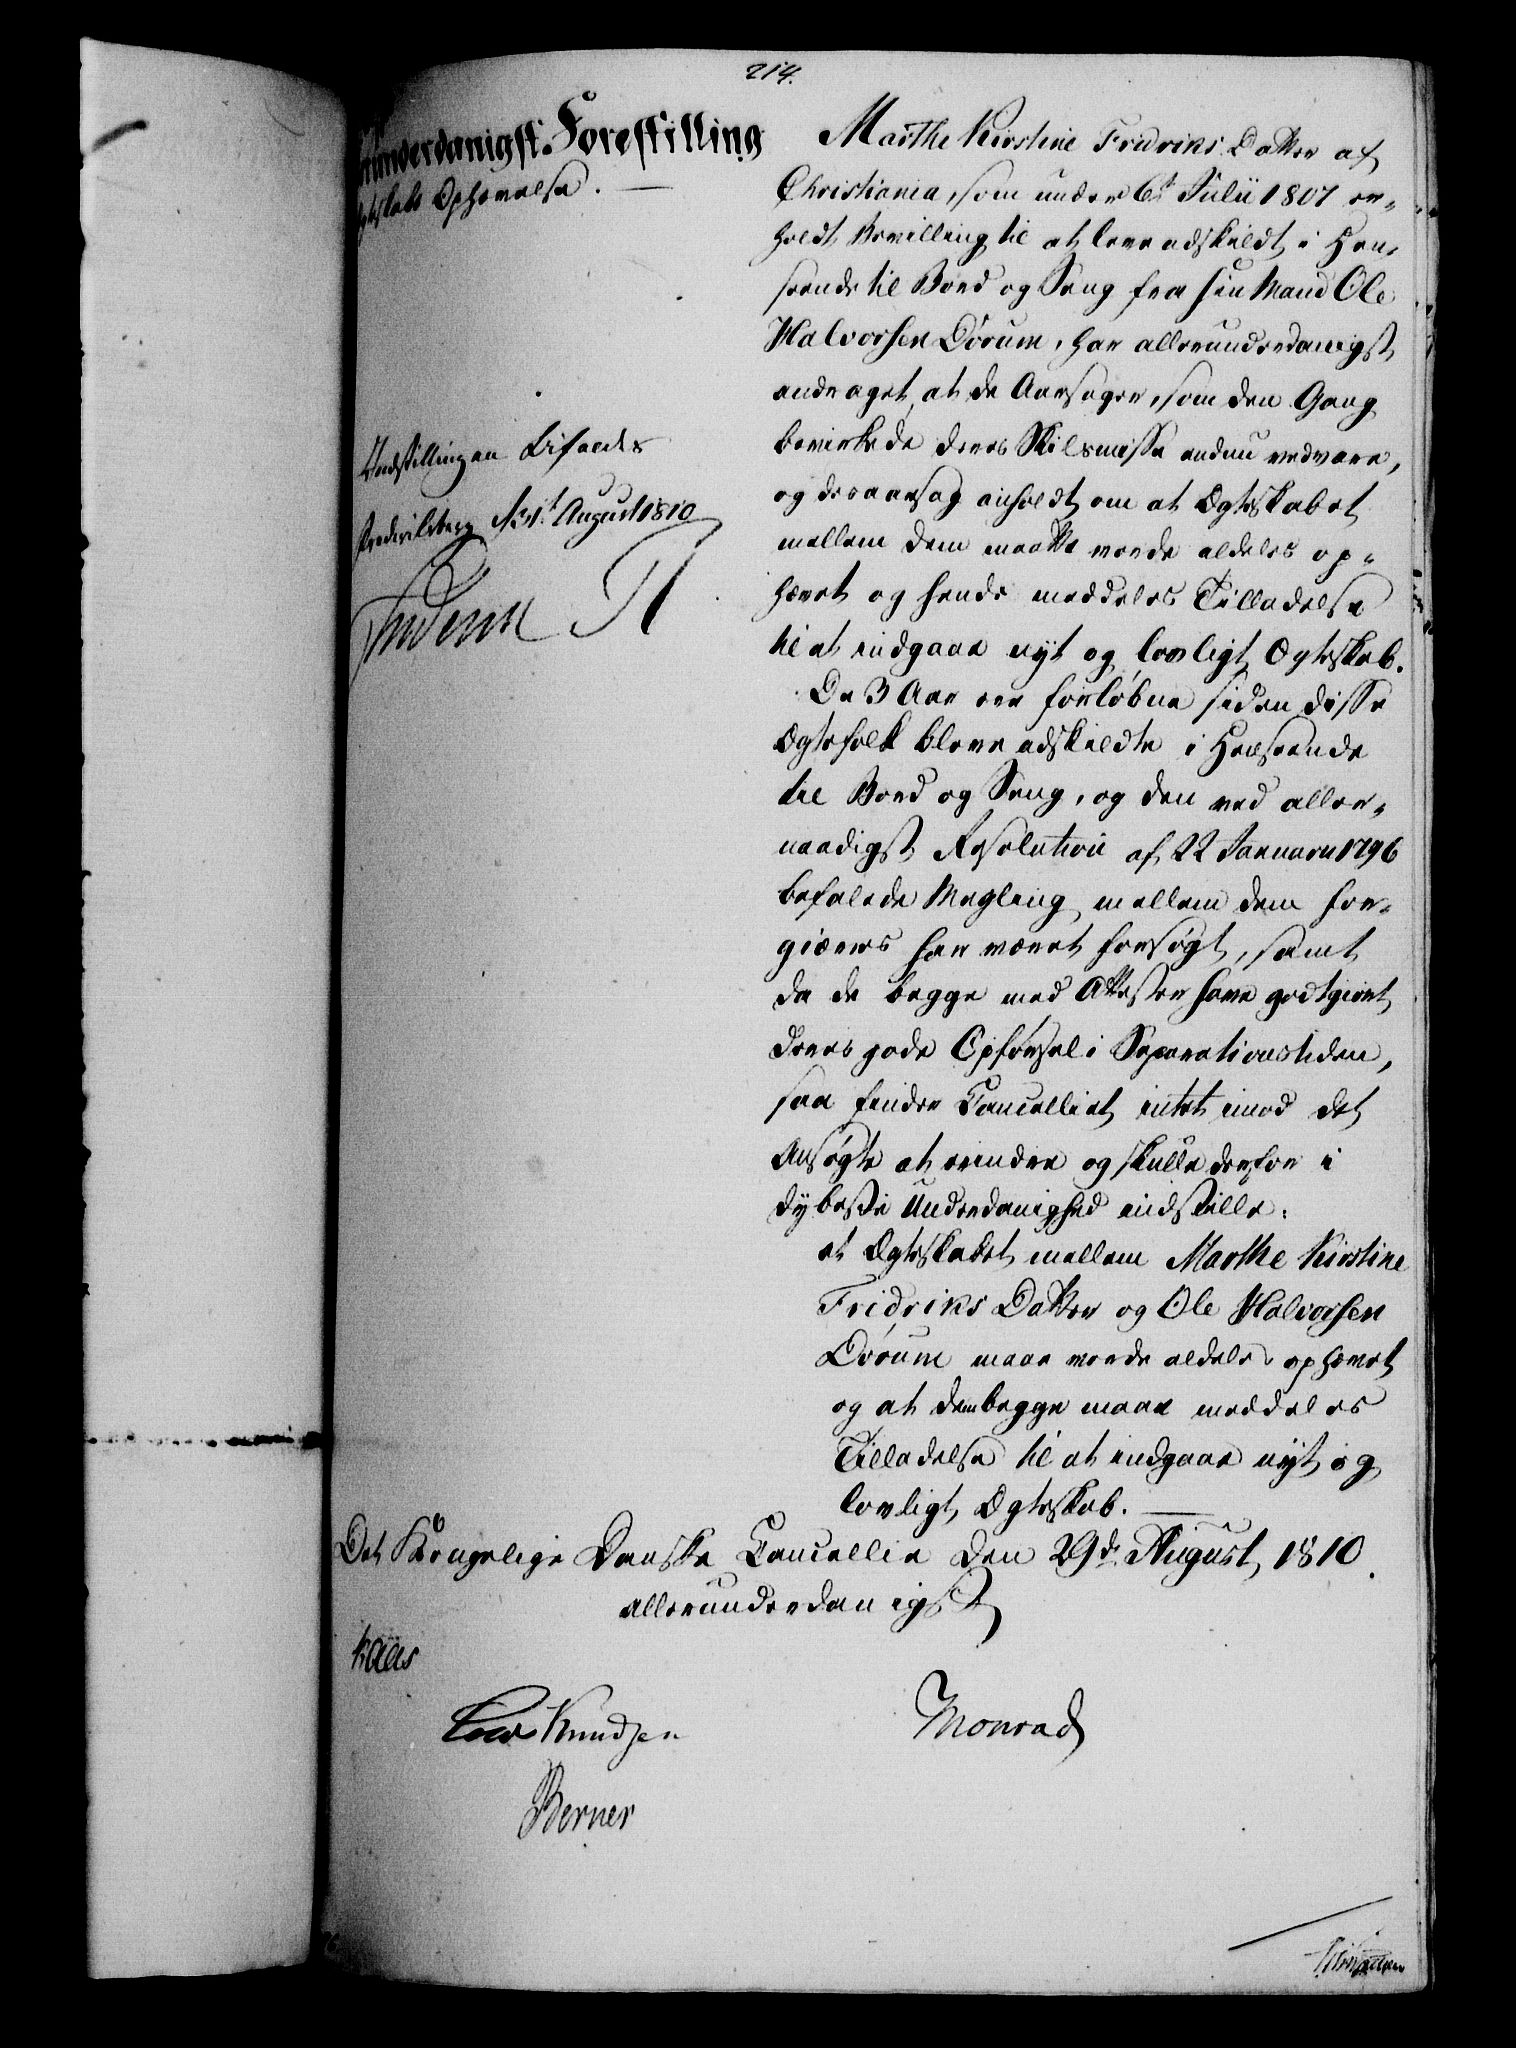 214.
allerunderdanigst Forestilling
Ægteskabs Ophævelse.
Indstillingen bifaldes
Frederiksberg d 31t August 1810
Frederik R
Marthe Kirstine Fridriks Datter af
Christiania, som under 6te Julii 1807 er-
holdt Bevilling til at leve adskildt i Hen-
seende til Bord og Seng fra sin Mand Ole
Halvorsen Dørum, har allerunderdanigst
andraget, at de Aarsager, som den Gang
bevirkede deres Skilsmisse endnu vedvare,
og desaarsag anholdt om at Ægteskabet
mellem dem maatte vorde aldeles op-
hævet og hende meddeles Tilladelse
til at indgaae nyt og lovligt Ægteskab.
Da 3 Aar ere forløbne siden disse
Ægtefolk bleve adskildte i Henseende
til Bord og Seng, og den ved aller-
naadigst Resolution af 22 Januarii 1796
befalede Mægling mellem dem for-
giæves har været forsøgt, samt
da de begge med Attester have godtgiort
deres gode Opførsel i Separationstiden,
saa finder Cancelliet intet imod det
Ansøgte at erindre og skulle derfor i
dybeste Underdanighed indstille:
at Ægteskabet mellem Marthe Kirstine
Fridriks Datter og Ole Halvorsen
Dørum maae vorde aldeles ophævet
og at dem begge maae meddeles
Tilladelse til at indgaae nyt og
lovligt Ægteskab.
Det Kongelige Danske Cancellie den 29de August 1810.
allerunderdanigst
Kaas
Knudsen
Monrad
Berner